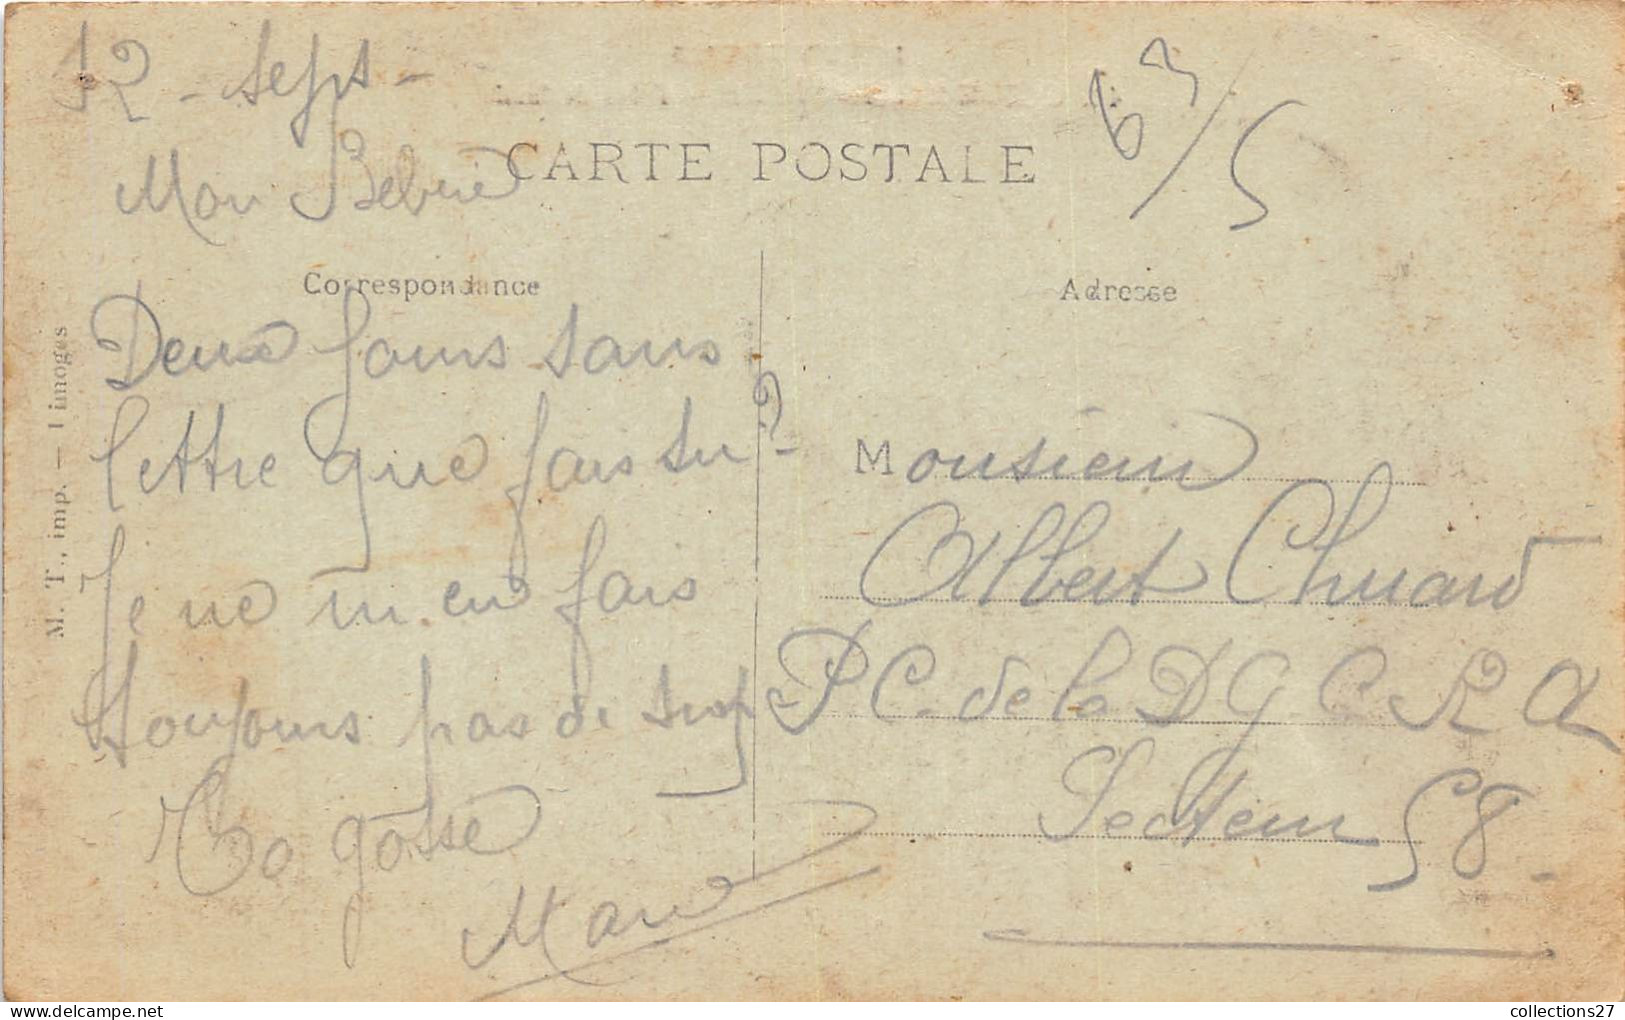 12 - Sept -
63/5
CARTE POSTALE
Mon Bébé
Correspondance
Adresse
Deux jours sans
lettre que fais tu ?
Je ne m'en fais
toujours pas de trop
Ta gosse
Marie
Monsieur
Albert Chuard
P C. de la D G C R A
Secteur 58.
M. T., imp. — Limoges
collections27